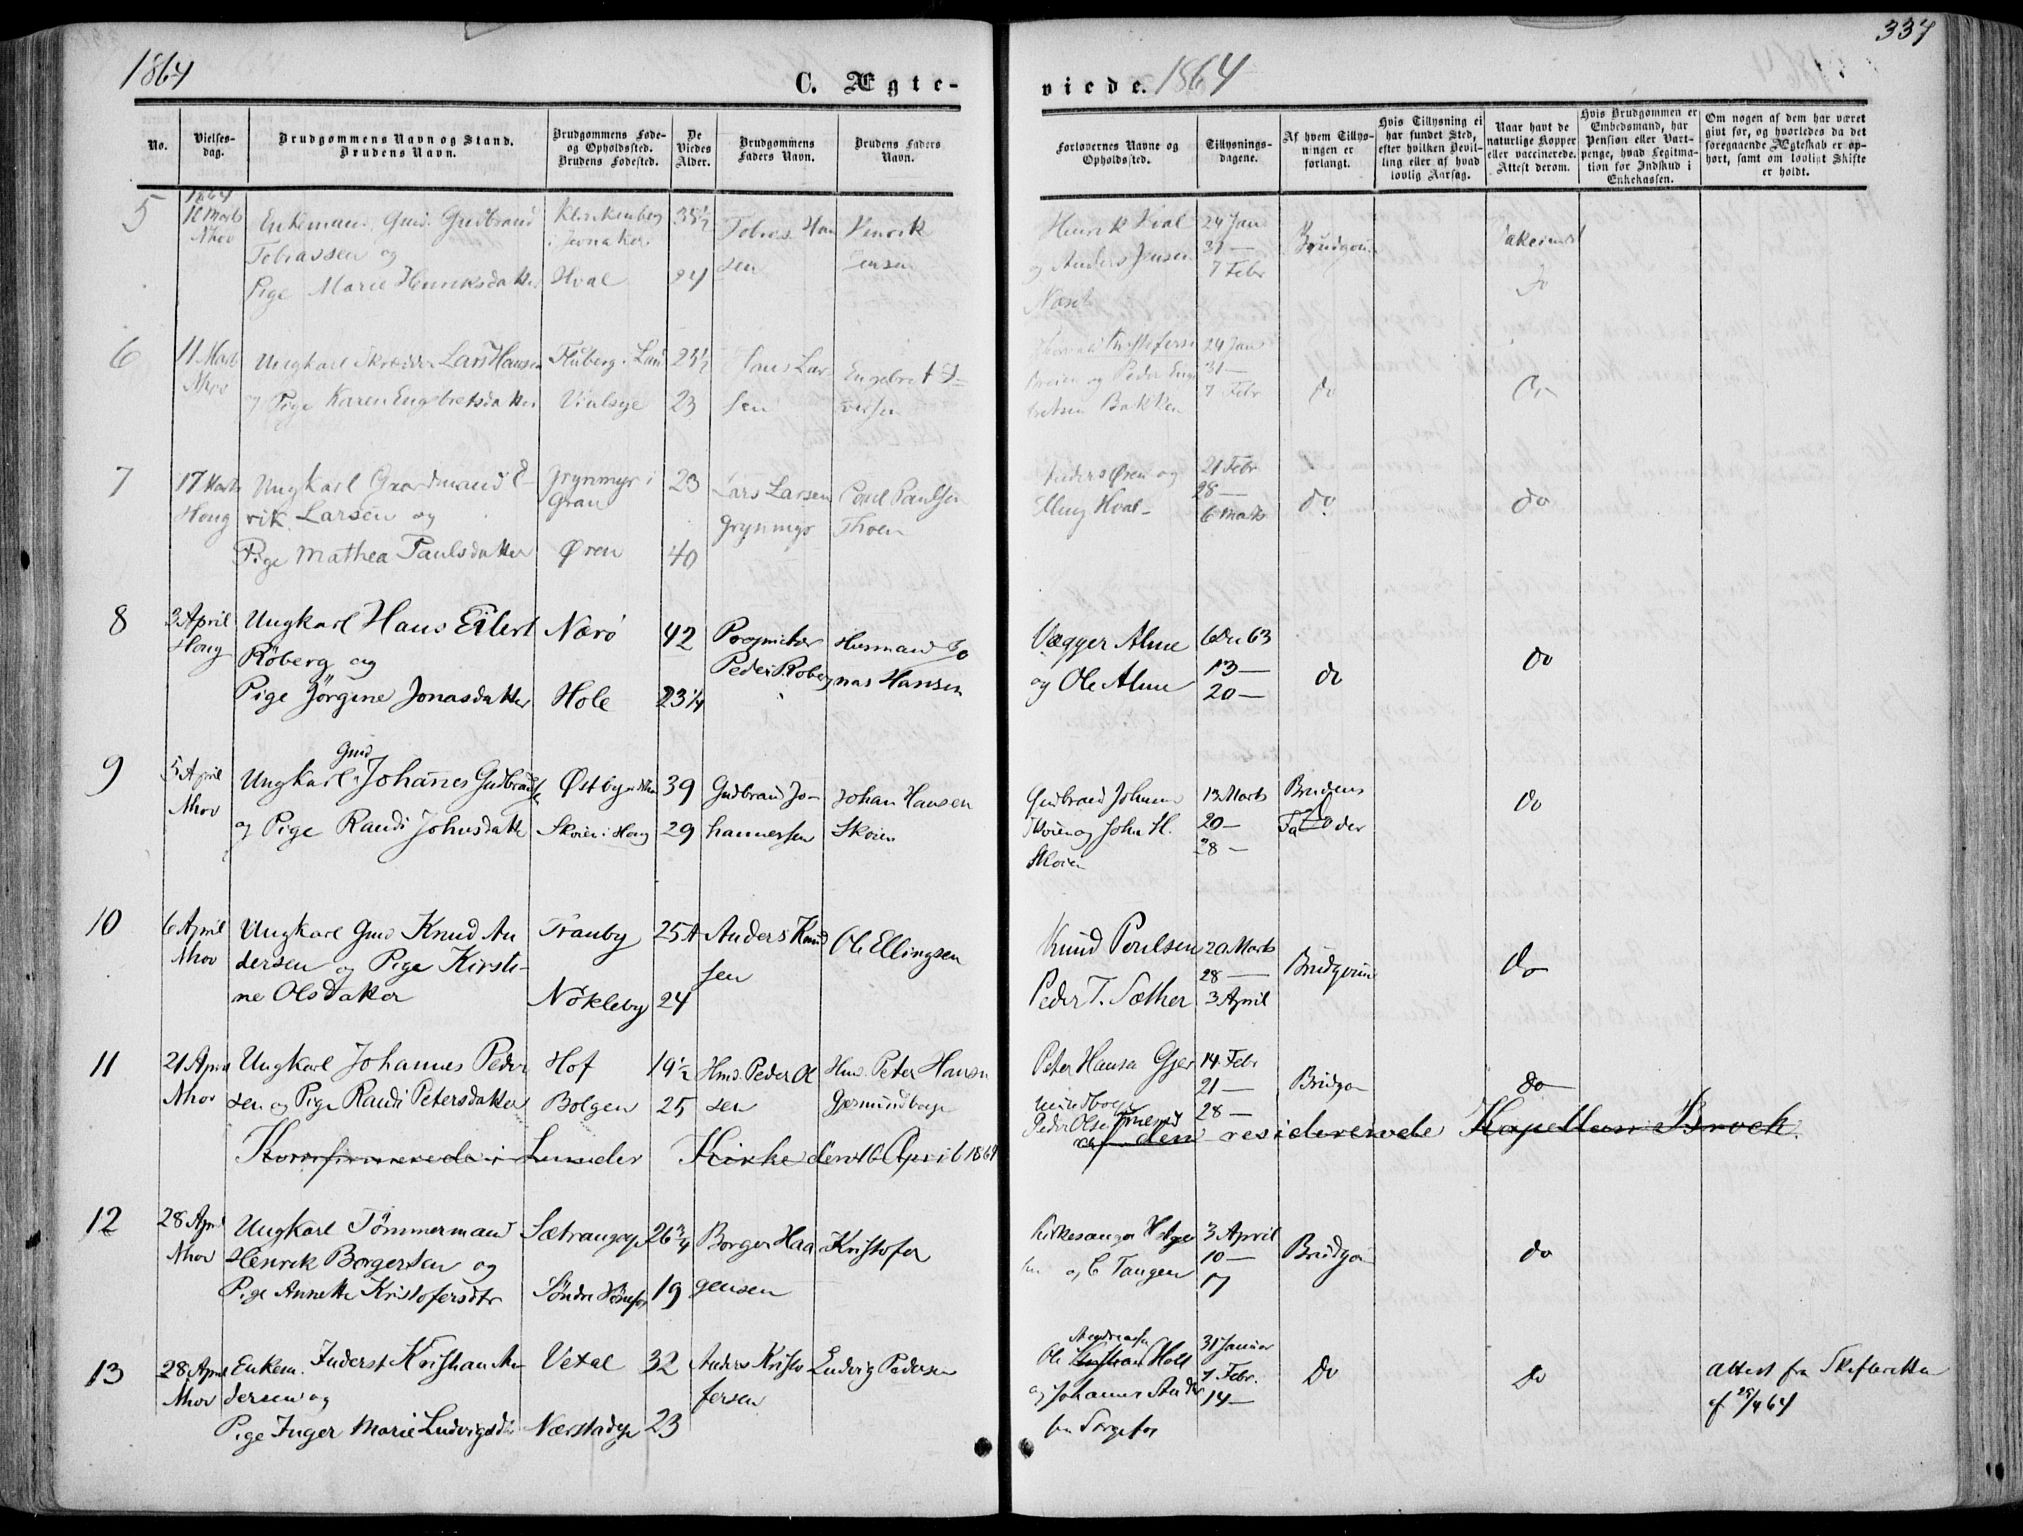 1864
C. Ægte-
viede.
1864
337
No.
Vielses-
dag.
Brudgommens Navn og Stand.
Brudens Navn.
Brudgommens Føde-
og Opholdssted.
Brudens Fødested.
De
Viedes
Alder.
Brudgommens
Faders Navn.
Brudens Faders
Navn.
Forlovernes Navne og
Opholdssted.
Tillysnings-
dagene.
Af hvem Tillys-
ningen er
forlangt.
Hvis Tillysning ei
har fundet Sted,
efter hvilken Bevil-
ling eller af hvad
lovlig Aarsag.
Naar havt de
naturlige Kopper
eller vaccinerede.
Attest derom.
Hvis Brudgommen er
Embedsmand, har
Pension eller Vart-
penge, hvad Legitima-
tion for Indskud i
Enkekassen.
Om nogen af dem har været
gift før, og hvorledes da det
foregaaende Ægteskab er op-
hørt, samt om lovligt Skifte
er holdt.
5
1864
Marts
Nhov
Enkemand Gmd. Gudbrand
Tobiassen og
Pige Marie Henriksdatter
i Jevnaker
Hval
35½
24
Tobias Han
sen
Henrik
Jensen
Henrik Hval
og Anders Jensen
24 Jan
31 —
7 Febr
Brudgom
do
6
11 Marts
Nhov
Ungkarl Skrædder Lars Hansen
og Pige Karen Engebretsdatter
Fluberg i Land
23½
23
Hans Lar
sen
Engebret I-
versen
Kristofersen
Breien og Peder Enge
bretsen Bakken
24 Jan
31 —
7 Febr
do
Do
7
17 Marts
Houg
Ungkarl Gaardmand E-
rik Larsen og
Pige Mathea Paulsdatter
Grynmyr i
Gran
Øren
23
40
Lars Larsen
Grynmyr
Poul Poulsen
Thoen
Anders Øren og
Elling Hval
21 Febr
28 —
6 Marts
do
do
8
3 April
Houg
Ungkarl Hans Eilert
Röberg og
Pige Jörgine Jonasdatter
Nærö
Hole
42
23¼
Peder Roberg
Husmand Jo
nas Hansen
Vægger Alme
og Ole Alme
6 Dec 63
13 —
20 —
do
do
9
5 April
Nhov
Ungkarl Gmd Johannes Gudbrandse
og Pige Randi Johnsdatte
Østby
Skøien i Houg
39
29
Gudbrand Jo-
hannessen
Johan Hansen
Skøien
Gudbrand Johans
Skøien og John H.
Skøien
13 Marts
20 —
28 —
Brudens
Fader
do
10
6 April
Nhov
Ungkarl Gmd Knud An
dersen og Pige Kirsti-
ne Olsdatter
Tranby
Nökleby
25
24
Anders Knud
sen
Ole Ellingsen
Knud Poulsen
Peder T. Sæther
20 Marts
28 —
3 April
Brudgom
do
11
21 April
Nhov
Ungkarl Johannes Peder
sen og Pige Randi Petersdatter
Hof
Bolgen
19½
25
Hmd. Peder Ol
sen
Hmd. Peter Hansen
Gjermundboeje
Peter Hansen Gjer
mundboeje
Peder Olsen
14 Febr
21 —
28 —
Brudgom
do
Konfirmerede i Lunder Kirke den 16 April 1864
af den residerende Kapellan Brock.
12
28 April
Nhov
Ungkarl Tömmermand
Henrik Borgersen og
Pige Annette Kristofersdtr
Sætrangeje
Söndre Hönefos
26¾
19
Borger Haa
gensen
Kristofer
Kirkesanger Helge
sen og C Tangen
3 April
10 —
17
Brudgom
do
13
28 April
Nhov
Enkem. Inderst Kristian An
dersen og
Pige Inger Marie Ludvigsdtr
Vetal
Nærstadeje
32
23
Anders Kristo
fersen
Ludvig Pedersen
Andreasen
Ole Kristian Holt
og Johannes Ander
sen Torgefos
31 Januar
7 Febr.
14 —
Do
Do
Attest fra Skifteretten
af 25/4 64